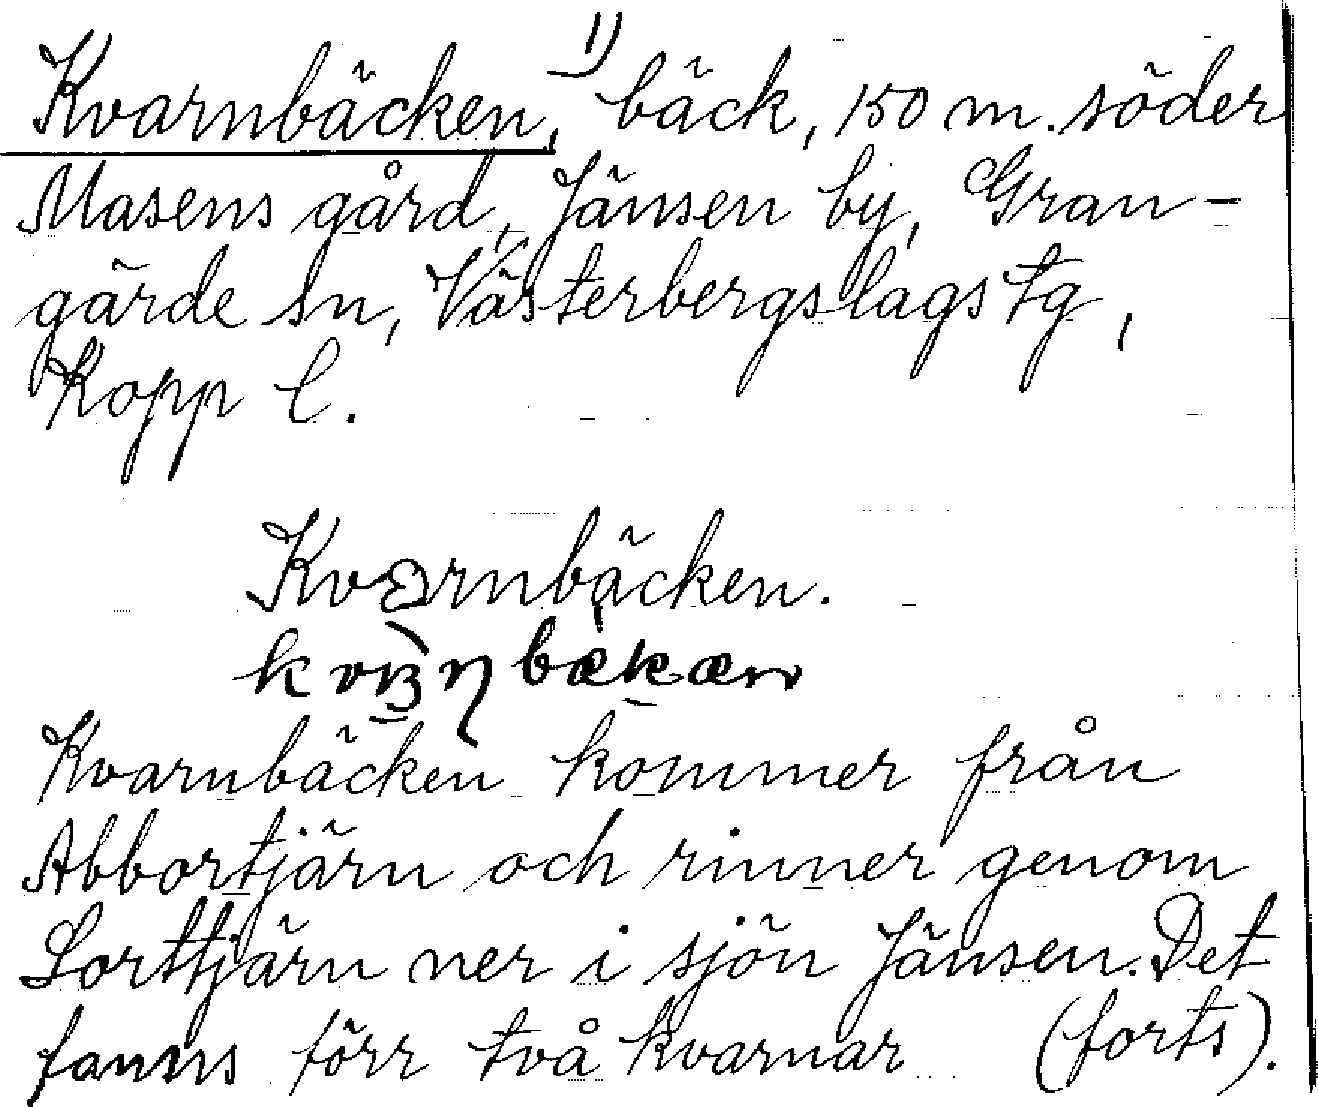 Kvarnbäcken, 1) bäck, 150 m. söder
Masens gård, Jänsen by, Gran-
gärde sn, Västerbergslags tg,
Kopp l.
Kvarnbäcken.
Kvarnbäcken kommer från
Abbortjärn och rinner genom
Lorttjärn ner i sjön Jänsen. Det
fanns förr två kvarnar (forts).